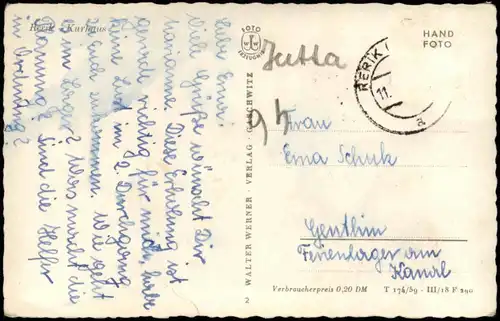 Rerik - Kurhaus
Liebe Erni!
Viele Grüße sendet Dir
Marianne. Diese Erholung ist
gerade richtig für mich, habe
keine Lust im 2. Durchgang
zu Euch zu kommen. Wie geht
es im Lager? Was macht die
Planung? Sind die Helfer
in Ordnung?
FOTO
WALTER WERNER - VERLAG - GASCHWITZ
2
Jutta
94
HAND
FOTO
RERIK
11.
a
Frau
Erna Schulz
Genthin
Ferienlager am
Kanal
Verbraucherpreis 0,20 DM
T 174/59 - III/18 F 290